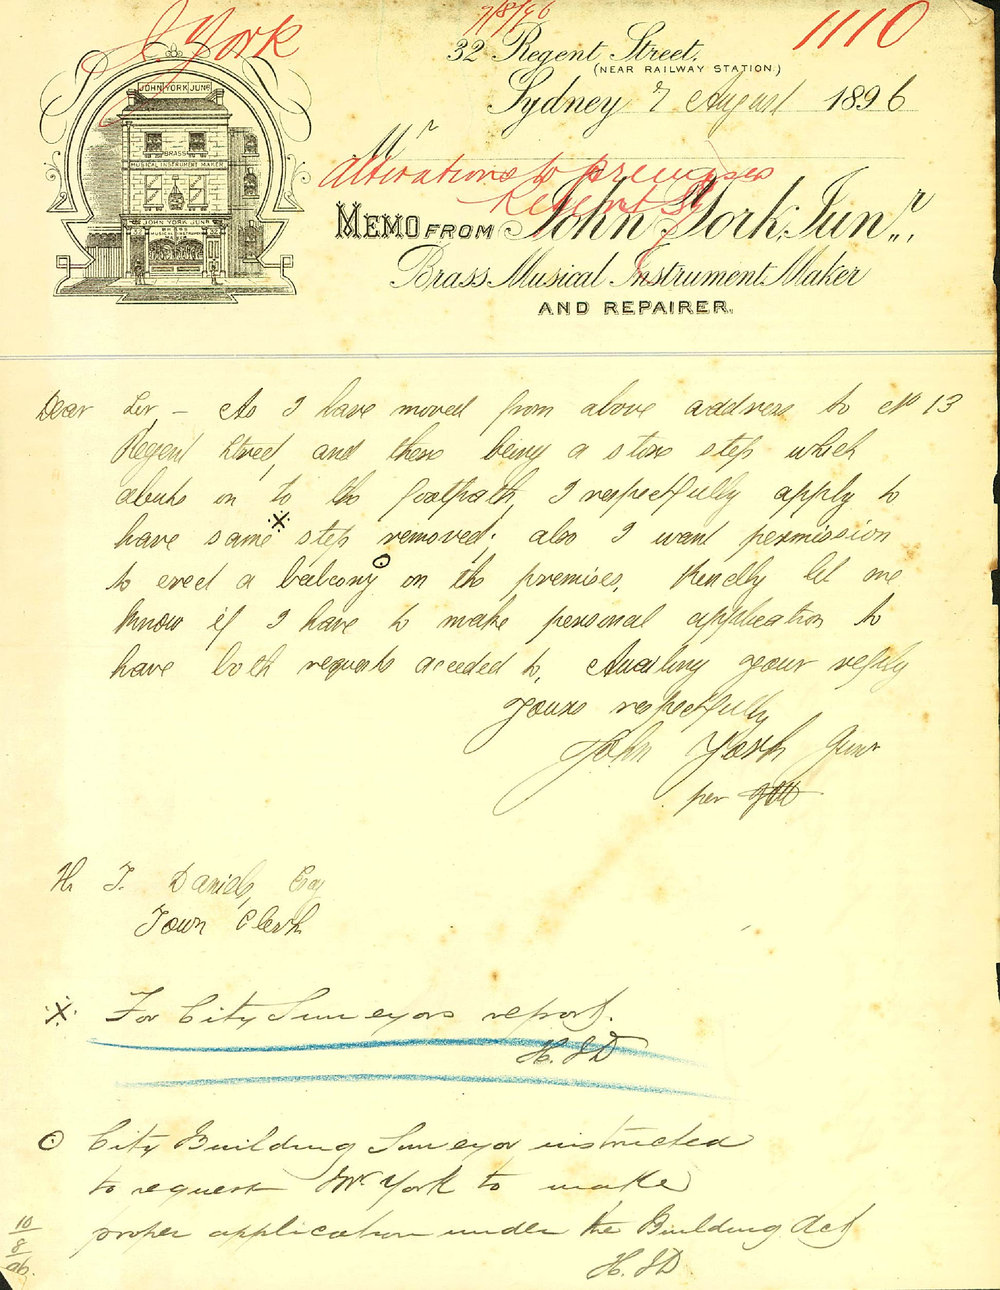 J. York
7/8/96
1110
32 Regent Street.
(NEAR RAILWAY STATION.)
Sydney 7 August 1896
Mr
Alterations to premises
Regent St
MEMO FROM John York, Junr.,
Brass Musical Instrument Maker
AND REPAIRER.
JOHN YORK JUNR
BRASS
MUSICAL INSTRUMENT MAKER
JOHN YORK JUNR
BRASS
MUSICAL INSTRUMENT
Dear Sir – As I have moved from above address to No 13
Regent Street, and there being a stone step which
abuts on to the footpath, I respectfully apply to
have same step removed; also I want permission
to erect a balcony on the premises, Kindly let me
know if I have to make personal application to
have both requests acceded to, Awaiting your reply
Yours respectfully
John York Junr
per
H. T. Daniels, Esq
Town Clerk
For City Surveyors report.
H. J D
City Building Surveyor instructed
to request Mr. York to make
proper application under the Building Act
H. J D
10/8/96.